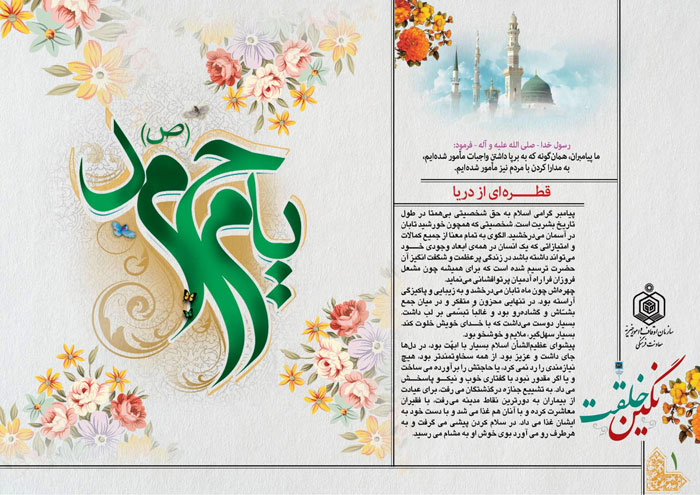 یا محمد (ص)
رسول خدا - صلی الله علیه و آله - فرمود:
ما پیامبران، همان‌گونه که به برپا داشتن واجبات مأمور شده‌ایم،
به مدارا کردن با مردم نیز مأمور شده‌ایم.
قطره‌ای از دریا
پیامبر گرامی اسلام به حق شخصیتی بی‌همتا در طول
تاریخ بشریت است. شخصیتی که همچون خورشید تابان
در آسمان می‌درخشید. الگوی به تمام معنا از جمیع کمالات
و امتیازاتی که یک انسان در همه‌ی ابعاد وجودی خود
می‌تواند داشته باشد در زندگی پرعظمت و شگفت انگیز آن
حضرت ترسیم شده است که برای همیشه چون مشعل
فروزان فرا راه آدمیان پرتوافشانی می‌نماید.
چهره‌اش چون ماه تابان می‌درخشد و به زیبایی و پاکیزگی
آراسته بود. در تنهایی محزون و متفکر و در میان جمع
بشاش و گشاده‌رو بود و غالبا تبسمی بر لب داشت.
بسیار دوست می‌داشت که با خدای خویش خلوت کند.
بسیار سهل‌گیر، ملایم و خوشخو بود.
پیشوای عظیم‌الشأن اسلام بسیار با ابهت بود، در دل‌ها
جای داشت و عزیز بود. از همه سخاوتمندتر بود، هیچ
نیازمندی را رد نمی کرد، یا حاجتش را برآورده می ساخت
و یا اگر مقدور نبود با گفتاری خوب و نیکو پاسخش
می داد. به تشییع جنازه درگذشتکان می رفت، برای عبادت
از بیماران به دورترین نقاط مدینه می‌رفت، با فقیران
معاشرت کرده و با آنان هم غذا می شد و با دست خود به
ایشان غذا می داد. در سلام کردن پیشی می گرفت و به
هرطرف رو می آورد بوی خوش او به مشام می رسید.
سازمان اوقاف و امور خیریه
معاونت فرهنگی
نگین خلقت
۱